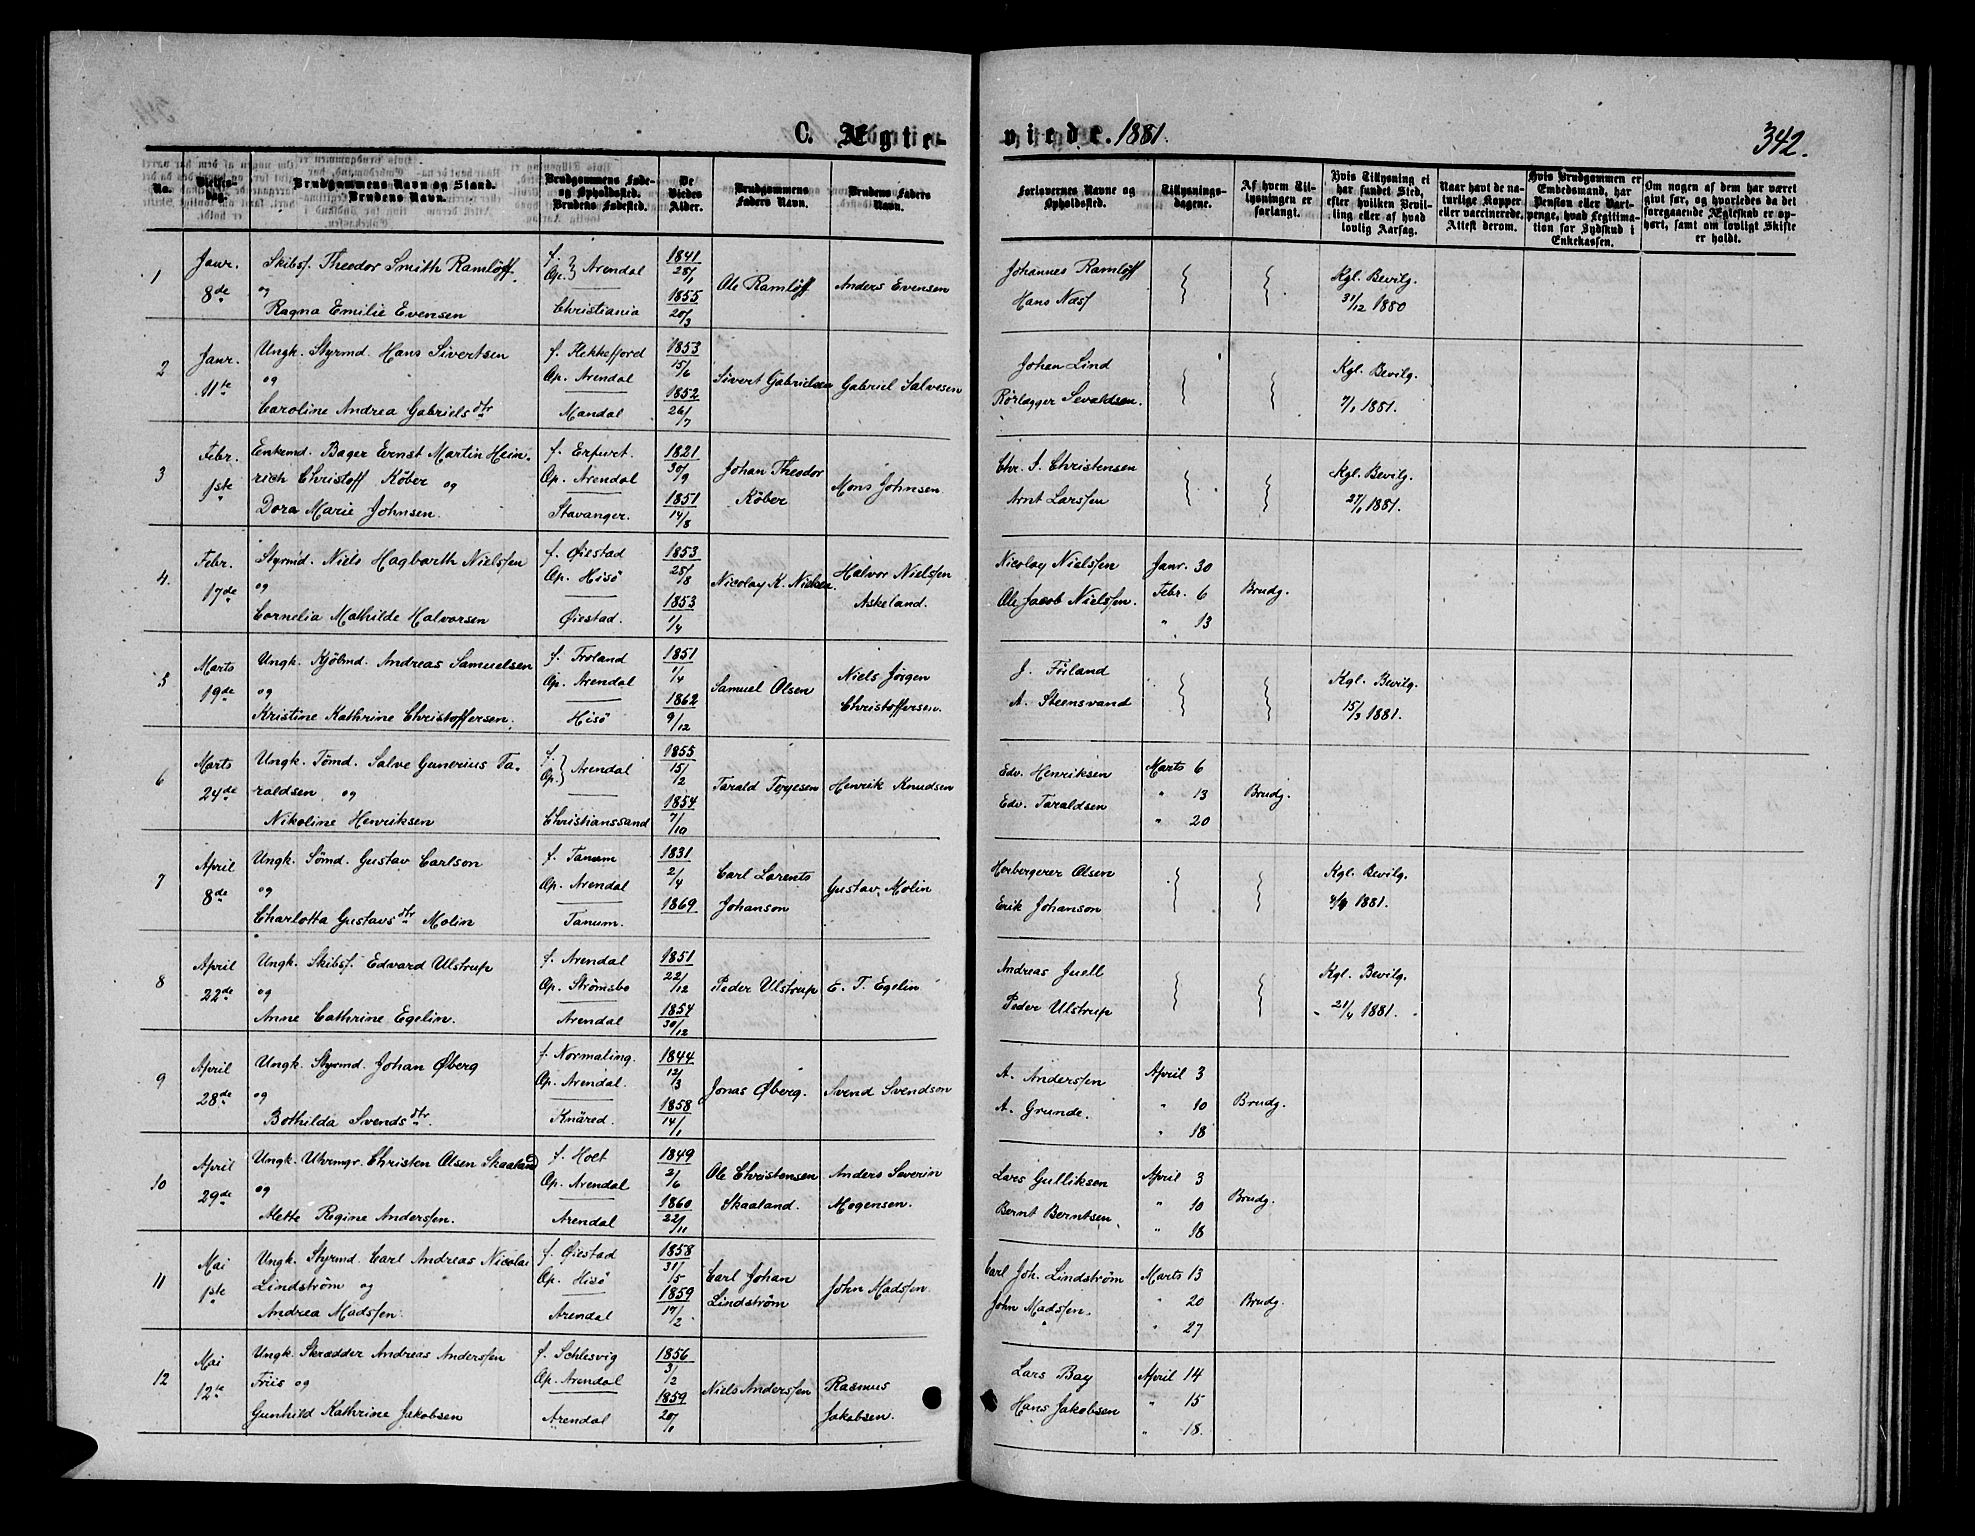 C. Ægte-
viede. 1881.
342.
No.
Vielses-
dag.
Brudgommens Navn og Stand.
Brudens Navn.
Brudgommens Føde-
og Opholdssted.
Brudens Fødested.
De
Viedes
Alder.
Brudgommens
Faders Navn.
Brudens Faders
Navn.
Forlovernes Navne og
Opholdssted.
Tillysnings-
dagene.
Af hvem Til-
lysningen er
forlangt.
Hvis Tillysning ei
har fundet Sted,
efter hvilken Bevil-
ling eller af hvad
lovlig Aarsag.
Naar havt de na-
turlige Kopper
eller vaccinerede.
Attest derom.
Hvis Brudgommen er
Embedsmand, har
Pension eller Vart-
penge, hvad Legitima-
tion for Indskud i
Enkekassen.
Om nogen af dem har været
givt før, og hvorledes da det
foregaaende Ægteskab er op-
hørt, samt om lovligt Skifte
er holdt.
1
Janr.
8de
Skibsf. Theodor Smith Ramløff.
og
Ragna Emilie Evensen
f. } Arendal
Op.
Christiania
1841
28/1
1855
20/3
Ole Ramløff
Anders Evensen
Johannes Ramløff
Hans Næss
Kgl. Bevilg.
31/12 1880
2
Janr.
11te
Ungk. Styrmd. Hans Sivertsen
og
Caroline Andrea Gabrielsdtr
f. Flekkefjord
Op. Arendal
Mandal
1853
15/6
1852
26/7
Sivert Gabrielsen
Gabriel Salvesen
Johan Lind
Rørlægger Sevaldsen.
Kgl. Bevilg.
7/1 1881.
3
Febr.
1ste
Enkemd. Bager Ernst Martin Hein-
rich Christoff Köber og
Dora Marie Johnsen.
f. Erfurt.
Op. Arendal
Stavanger.
1821
30/9
1851
14/8
Johan Theodor
Köber
Mons Johnsen
Chr. I. Christensen
Arnt Larssen
Kgl. Bevilg.
27/1 1881.
4.
Febr.
17de
Styrmd. Niels Hagbarth Nielssen
og
Cornelia Mathilde Halvorsen
f. Øiestad
Op. Hisö
Øiestad.
1853
28/8
1853
1/4
Nicolay K. Nielsen.
Halvor Nielssen
Askeland.
Nicolay Nielssen
Ole Jacob Nielssen.
Janr. 30
Febr. 6
" 13
Brudg.
5
Marts
19de
Ungk. Kjölmd. Andreas Samuelsen
og
Kristine Kathrine Christoffersen.
f. Froland
Op. Arendal
Hisö
1851
1/4
1862
9/12
Samuel Olsen
Niels Jørgen
Christoffersen.
J. Föiland
A. Steensvand
Kgl. Bevilg.
15/3 1881.
6
Marts
24de
Ungk. Tömd. Salve Gunerius Ta-
raldsen og
Nikoline Henriksen
f. } Arendal
Op.
Christianssand
1855
15/2
1854
7/10
Tarald Terjesen
Henrik Knudsen
Edv. Henriksen
Edv. Taraldsen
Marts 6
" 13
" 20
Brudg.
7
April
8de
Ungk. Sömd. Gustav Carlson
og
Charlotta Gustavsdtr Molin
f. Tanum
Op. Arendal
Tanum.
1831
2/4
1869
Carl Larents
Johanson
Gustav Molin
Herbergerer Olsen
Erik Johanson
Kgl. Bevilg.
1881.
8
April
22de
Ungk. Skibsf. Edvard Ulstrup
og
Anne Cathrine Egelin.
f. Arendal
Op. Strömsbo
Arendal
1851
22/12
1854
30/12
Peder Ulstrup
E. T. Egelin
Andreas Juell
Peder Ulstrup
Kgl. Bevilg.
21/4 1881.
9
April
28de
Ungk. Styrmd. Johan Øberg
og
Bothilda Svendsdtr.
f. Normaling.
Op. Arendal.
Knäred.
1844
12/3
1858
14/1
Jonas Øberg.
Svend Svendson
A. Anderssen
A. Grunde.
April 3
" 10
" 18
Brudg.
10
April
29de
Ungk. Uhrmgr. Christen Olsen Skaaland
og
Alette Regine Anderssen.
f. Holt
Op. Arendal
Arendal
1849
2/6
1860
22/11
Ole Christensen
Skaaland.
Anders Severin
Mogensen.
Lars Gulliksen
Bernt Berntsen
April 3
" 10
" 18
Brudg.
11
Mai
1ste
Ungk. Styrmd. Carl Andreas Nicolai
Lindström og
Andrea Madssen.
f. Øiestad
Op. Hisö
Arendal
1858
31/5
1859
17/2
Carl Johan
Lindström
John Madssen
Carl Joh. Lindström
John Madssen.
Marts 13
" 20
" 27
Brudg.
12
Mai
12te
Ungk. Skrædder Andreas Anderssen
Friis og
Gunhild Kathrine Jakobsen
f. Schlesvig
Op. Arendal
Arendal
1856
3/2
1859
20/1
Niels Anderssen
Rasmus
Jakobsen.
Lars Bay
Hans Jakobsen
April 14
" 15
" 18.